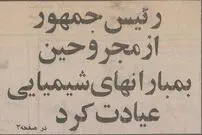 رئیس جمهور
از مجروحین
بمبارانهای شیمیایی
عیادت کرد
در صفحه۲